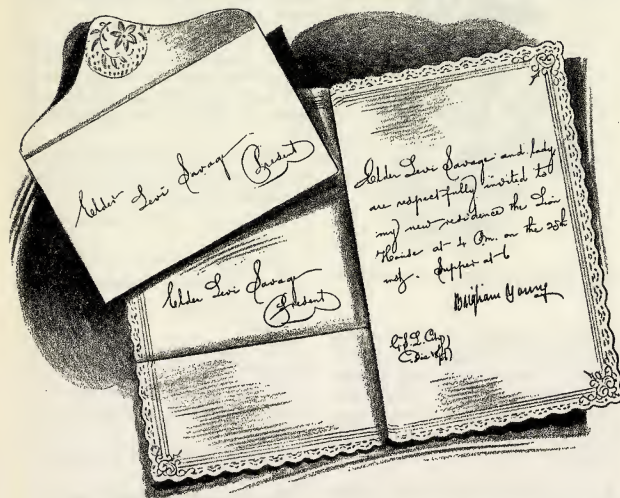 Elder Levi Savage
Present
Elder Levi Savage
Present
Elder Levi Savage and lady
are respectfully invited to
my new residence the Lion
House at 4 Pm. on the 25th
inst. Supper at 6
Brigham Young
G. S. L. City